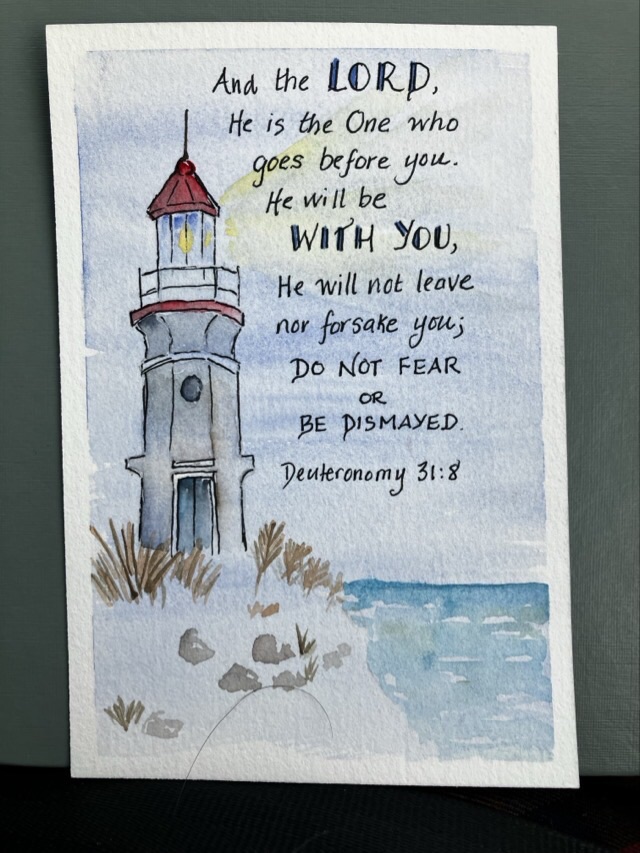 And the LORD,
He is the One who
goes before you.
He will be
WITH YOU,
He will not leave
nor forsake you;
DO NOT FEAR
OR
BE DISMAYED.
Deuteronomy 31:8